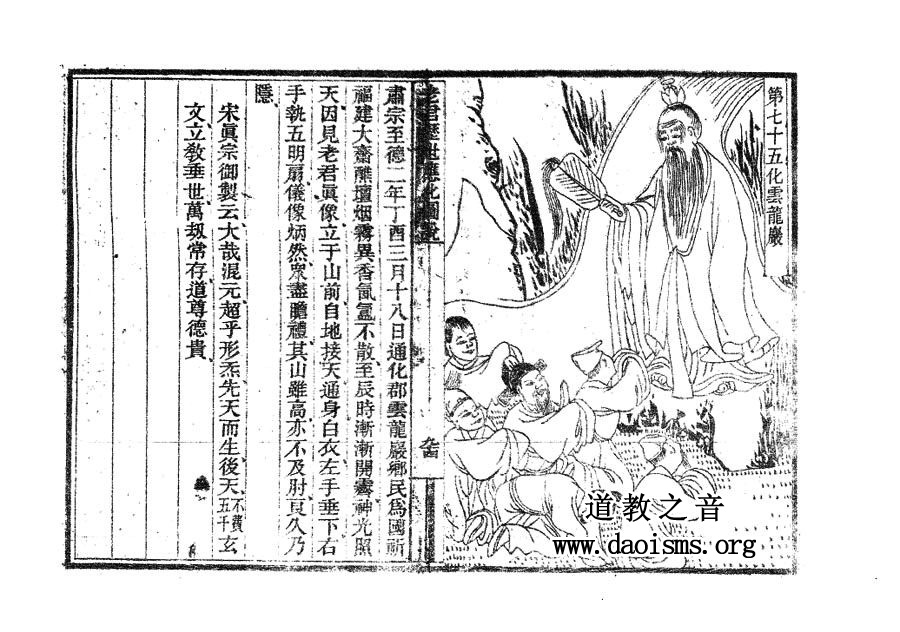 第七十五化雲龍巖
老君歷世應化圖說
肅宗至德二年丁酉三月十八日通化郡雲龍巖鄉民為國祈
福建大齋醮壇烟霧異香氤氳不散至辰時漸漸開霽神光照
天因見老君眞像立于山前自地接天通身白衣左手垂下右
手執五明扇儀像炳然眾盡瞻禮其山雖高亦不及肘良久乃
隱
宋眞宗御製云大哉混元超乎形炁先天而生後天不費五千玄
文立敎垂世萬刼常存道尊德貴
道教之音
www.daoisms.org